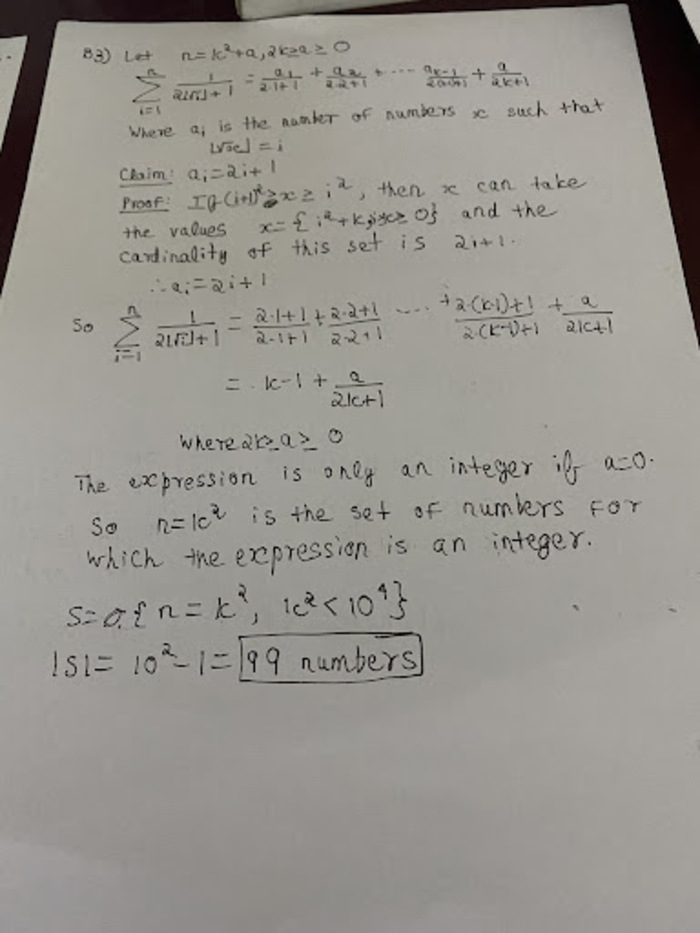 B3) Let n=k²+a, 2k≥a≥0
n ∑ i=1 1/(2⌊√i⌋+1) = a₁/(2·1+1) + a₂/(2·2+1) + ···· aₖ₋₁/(2(k-1)+1) + a/(2k+1)
Where aᵢ is the number of numbers x such that
⌊√x⌋ = i
Claim: aᵢ=2i+1
Proof: If (i+1)²>x≥i², then x can take
the values x={i²+k, ≥0} and the
cardinality of this set is 2i+1.
∴aᵢ=2i+1
So n ∑ i=1 1/(2⌊√i⌋+1) = (2·1+1)/(2·1+1) + (2·2+1)/(2·2+1) ···· + (2·(k-1)+1)/(2·(k-1)+1) + a/(2k+1)
= k-1 + a/(2k+1)
where 2k≥a≥0
The expression is only an integer if a=0.
So n=k² is the set of numbers for
which the expression is an integer.
S={n=k², k²<10⁴}
|S|= 10²-1= 99 numbers